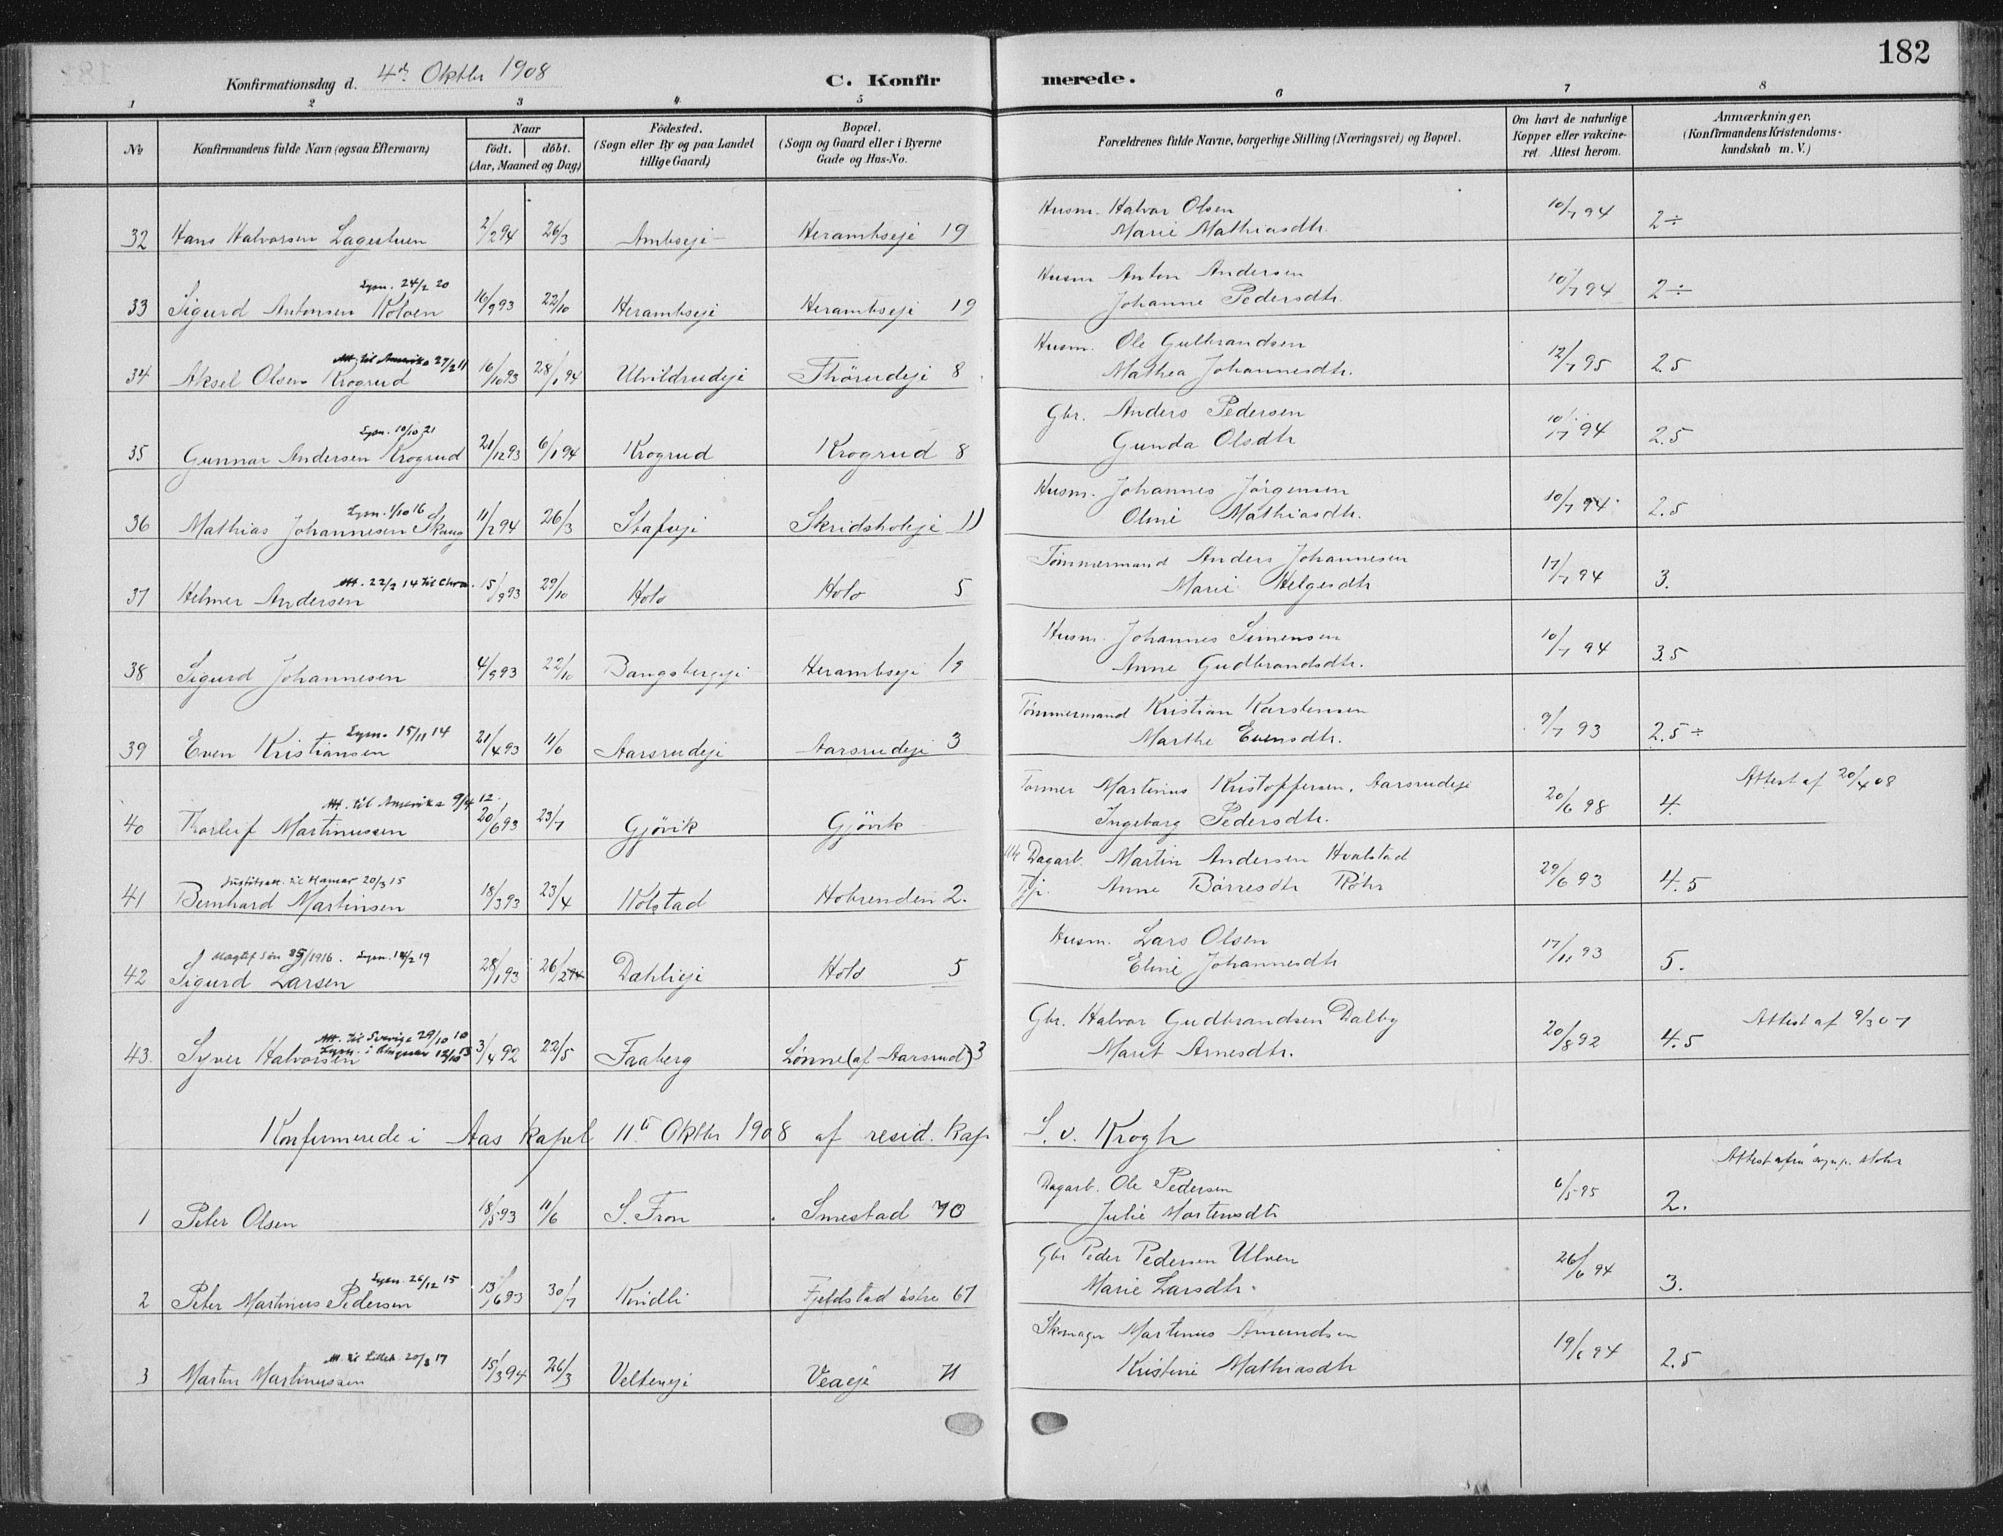 182
Konfirmationsdag d. 4de Oktbr 1908 C. Konfirmerede.
1 2 3 4 5 6 7 8
No Konfirmandens fulde Navn (ogsaa Efternavn) Naar født. døbt. (Aar, Maaned og Dag) Fødested. (Sogn eller By og paa Landet tillige Gaard) Bopæl. (Sogn og Gaard eller i Byerne Gade og Hus-No. Forældrenes fulde Navne, borgerlige Stilling (Næringsvei) og Bopæl. Om havt de naturlige Kopper eller vakcineret. Attest herom. Anmærkninger. (Konfirmandens Kristendomskundskab m. V.)
Husm. Halvor Olsen
32 Hans Halvorsen Lagestuen 2/2 94 26/3 Ambseje Herambseje 19 Marie Mathiasdtr. 10/7 94 2÷
Lysn. 24/2 20 Husm Anton Andersen
33 Sigurd Antonsen Kolven 16/9 93 22/10 Herambseje Herambseje 19 Johanne Pedersdtr. 10/7 94 2÷
Att. til Amerika 27/2 11 Husm. Ole Gulbrandsen
34 Aksel Olsen Krogrud 16/10 93 28/1 94 Ulvildrudeje Thörudeje 8 Mathea Johannesdtr. 12/7 95 2.5
Lysn. 10/10 21 Gbr. Anders Pedersen
35 Gunnar Andersen Krogrud 21/12 93 6/1 94 Krogrud Krogrud 8 Gunda Olsdtr 10/7 94 2.5
Lysn. 1/10 16 Husm. Johannes Jörgensen
36 Mathias Johannesen Skaug 11/2 94 26/3 Stafseje Skridsholeje 11 Oline Mathiasdtr. 10/7 94 2.5
Att. 22/2 14 til Chra. Tömmermand Anders Johannesen
37 Helmer Andersen 15/9 93 29/10 Holo Holo 5 Marie Helgesdtr 17/7 94 3.
Husm. Johannes Simensen
38 Sigurd Johannesen 4/9 93 22/10 Bangsbergeje Herambseje 19 Anne Gudbrandsdtr. 10/7 94 3.5
Lysn. 15/11 14 Tömmermand Kristian Karstensen
39 Even Kristiansen 21/4 93 11/6 Aarsrudeje Aarsrudeje 3 Marthe Evensdtr. 9/7 93 2.5÷
Att. til Amerika 9/4 12. Martinus Kristoffersen, Aarsrudeje Attest af 20/4 08
40 Thorleif Martinussen 20/6 93 23/7 Gjövik Gjövik Ingeborg Pedersdtr. 20/6 98 4.
til Hamar 20/3 15 Dagarb. Martin Andersen Hvalstad
41 Bernhard Martinsen 18/3 93 23/4 Kolstad Hobrenden 2. Tje. Anne Börresdtr Röhr 29/6 93 4.5
1916. Lysn. 14/2 19 Husm. Lars Olsen
42 Sigurd Larsen 28/1 93 26/2 94 Dahlieje Holo 5 Eline Johannesdtr 17/11 93 5.
Att. til Sverige 29/10 10 Gbr. Halvor Gudbrandsen Dalby Attest af 9/3 07
Lysn. i Ringsaker 12/10 13
43. Syver Halvorsen 3/4 92 22/5 Faaberg Lönne (af Aarsrud) 3 Marit Arnesdtr. 20/8 92 4.5
Konfirmerede i Aas kapel 11te Oktbr 1908 af resid. kap S. v. Krogh
Dagarb. Ole Pedersen Attest
1 Peter Olsen 18/5 93 11/6 S. Fron Smestad 70 Julie Mortensdtr 6/5 95 2.
Lysn. 26/12 15 Gbr Peder Pedersen Ulven
2 Peter Martinus Pedersen 13/6 93 30/7 Kindli Fjeldstad östre 67 Marie Larsdtr. 26/6 94 3.
Att. til Lilleh. 20/3 17 Skomager Martinus Amundsen
3 Martin Martinussen 15/3 94 26/3 Velteneje Veaeje 71 Kristine Mathiasdtr 19/6 94 2.5